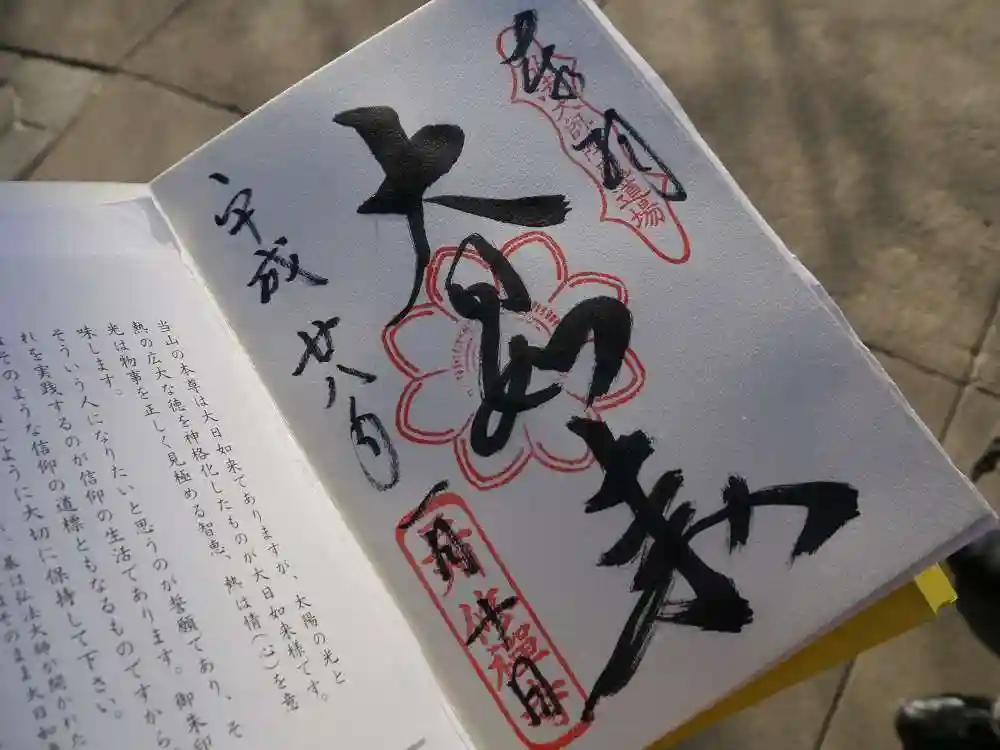 奉拝
大日如来
平成廿八年
一月十日
修禅寺
道場
当山の本尊は大日如来でありますが、太陽の光と
熱の広大な徳を神格化したものが大日如来様です。
光は物事を正しく見極める智恵、熱は情(心)を意
味します。
そういう人になりたいと思うのが誓願であり、そ
れを実践するのが信仰の生活であります。御朱印
そのような信仰の道標ともなるものですから
このように大切に保持して下さい。
基は弘法大師が開かれた
そのまま大日如